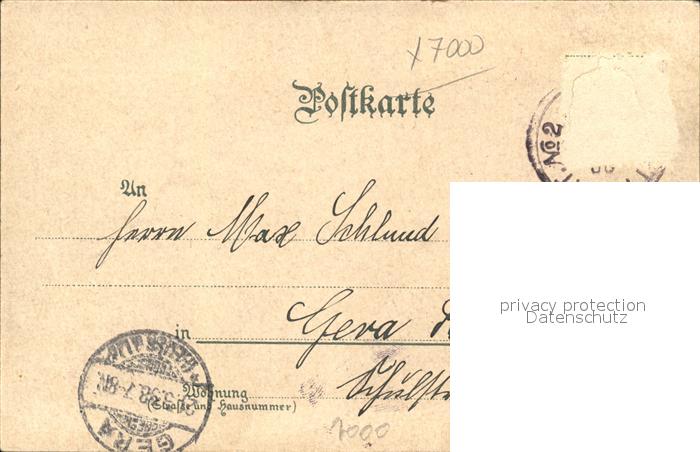 x 7000
Postkarte
No 2
An
Herrn Max Schlund
privacy protection
Datenschutz
in Gera
Wohnung
(Straße und Hausnummer)
GERA
7000